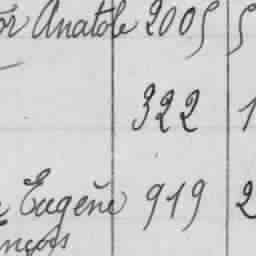 or Anatole 2005 5
322 1
Eugène 919 2
nçois